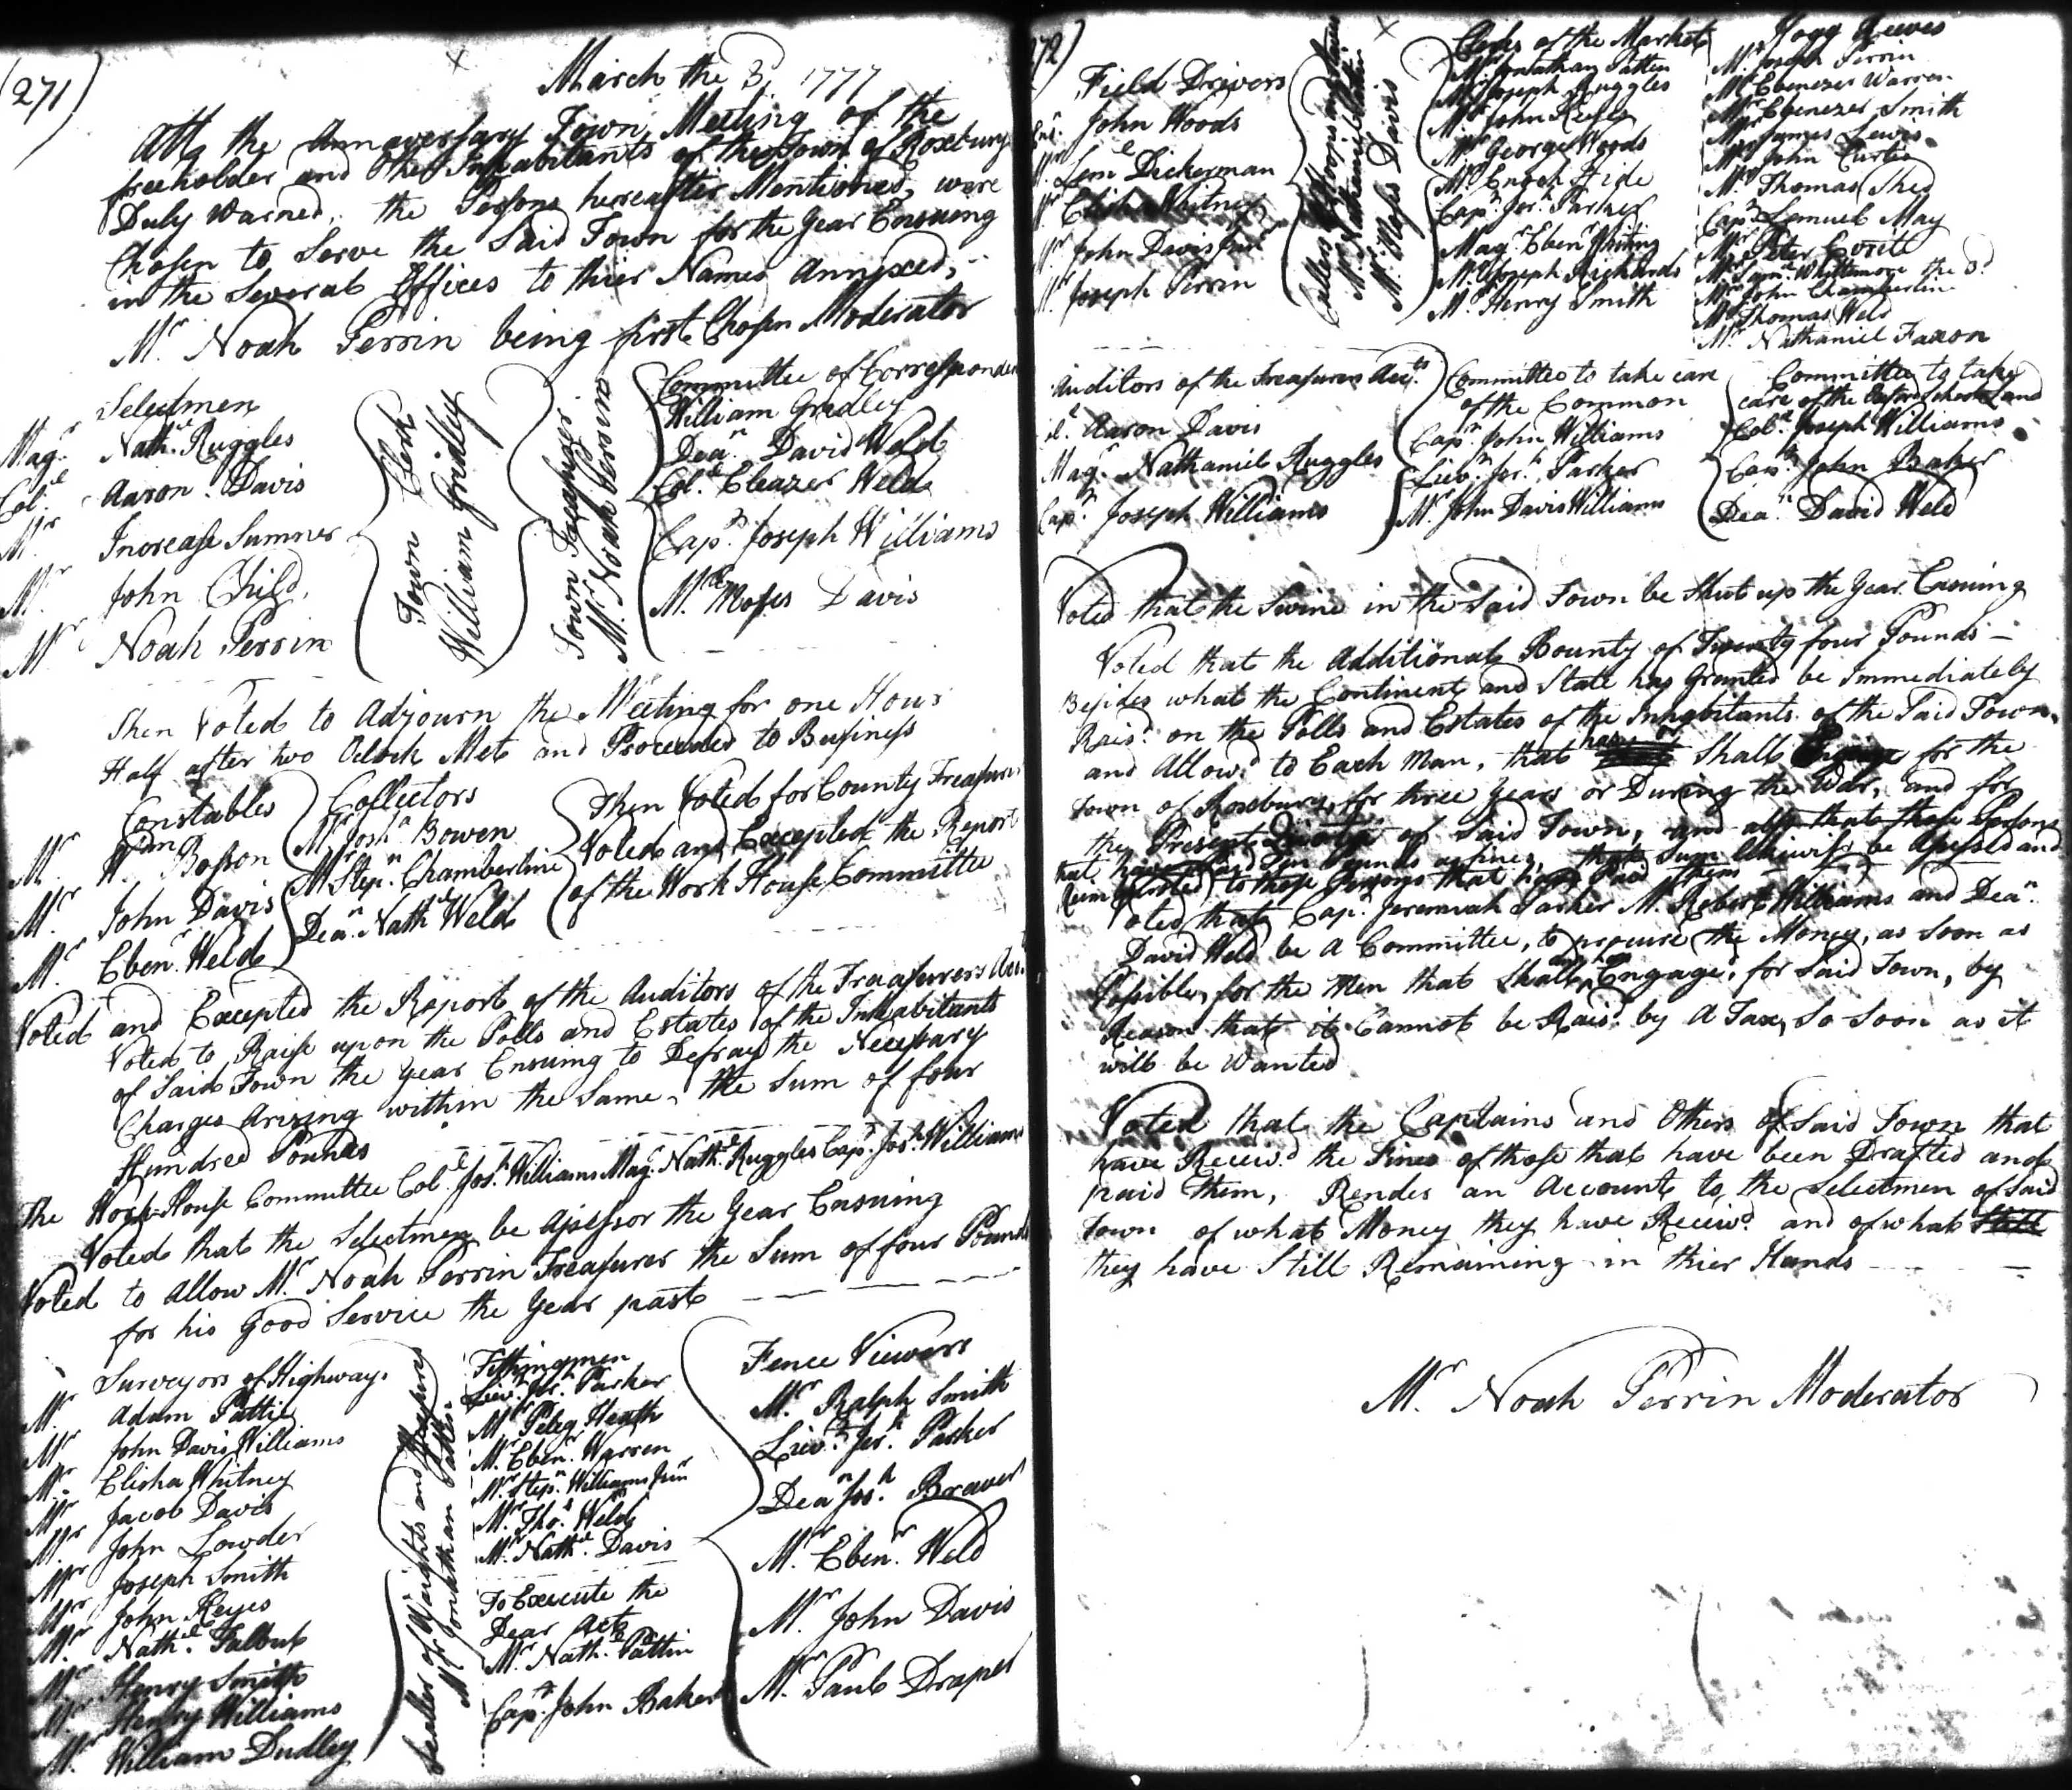 (271)
March the 3d. 1777
Att the Annaversary Town Meeting of the
freeholder and Other Inhabitants of the Town of Roxbury
Duly Warned, the Persons hereafter Mentioned, were
Chosen to Serve the Said Town for the Year Ensuing
in the Several Offices to thier Names Annexed,
Mr. Noah Perrin being first Chosen Moderator
Selectmen
Magr. Nathl. Ruggles
Coll. Aaron Davis
Mr. Increase Sumner
Mr. John Child
Mr. Noah Perrin
Town Clerk
William Gridley
Town Treasurer
Mr. Noah Perrin
Committee of Corresponden
William Gridley
Dean. David Weld
Col. Eleazer Weld
Capn. Joseph Williams
Mr. Moses Davis
Then Voted to Adjourn the Meeting for one Hour
Half after two Oclock Met and Proceeded to Business
Constables
Mr. Wm. Bosson
Mr. John Davis
Mr. Ebenr. Weld
Collectors
Mr. Josha. Bowen
Mr. Stepn. Chamberline
Dean. Nathl. Weld
Then Voted for County Treasurer
Voted and Excepted the Report
of the Work House Committee
Voted and Excepted the Report of the Auditors of the Treasurers Acct.
Voted to Raise upon the Polls and Estates of the Inhabitants
of Said Town the Year Ensuing to Defray the Necessary
Charges Arizing within the Same, the Sum of four
Hundred Pounds
The Work House Committee Coll. Josh. Williams Magr. Nathl. Ruggles Capn. Josh. Williams
Voted that the Selectmen be Assessor the Year Ensuing
Voted to Allow Mr. Noah Perrin Treasurer the Sum of four Pounds
for his Good Service the Year past
Surveyors of Highways
Mr. Adam Pattin
Mr. John Davis Williams
Mr. Elisha Whitney
Mr. Jacob Davis
Mr. John Lowder
Mr. Joseph Smith
Mr. John Keyes
Mr. Nathl. Talbut
Mr. Henry Smith
Mr. Henry Williams
Mr. William Dudley
Sealler of Waights and Measures
Mr. Jonathan Patten
Tithingmen
Lievt. Jerh. Parker
Mr. Peleg Heath
Mr. Ebenr. Warren
Mr. Stepn. Williams Junr
Mr. Thos. Weld
Mr. Nathl. Davis
To Execute the
Dear Act
Mr. Nathl. Pattin
Capn. John Baker
Fence Viewers
Mr. Ralph Smith
Lievt. Jerh. Parker
Dean Josh. Brewer
Mr. Ebenr. Weld
Mr. John Davis
Mr. Paul Draper
272)
Field Drivers
John Woods
Mr. Leml Dickerman
Mr. Elisha Whitney
Mr. John Davis Junr
Mr. Joseph Perrin
Cullers of Hoops and Staves
Mr. Moses Davis
Clerks of the Market
Mr. Jonathan Patten
Mr. Joseph Ruggles
Mr. John Keyes
Mr. George Woods
Mr. Enoch Hide
Capn. Jerh. Parker
Magr. Ebenr Whiting
Mr. Joseph Richards
Mr. Henry Smith
Hogg Reeves
Mr. Joseph Perrin
Mr. Ebenezer Warren
Mr. Ebenezer Smith
Mr. James Lewis
Mr. John Curtis
Mr. Thomas Shed
Capn. Lemuel May
Mr. Peter Everitt
Mr. Saml. Whittemore the 3d
Mr. John Chamberlin
Mr. Thomas Weld
Mr. Nathaniel Faxon
Auditors of the Treasurers Accts.
Coll. Aaron Davis
Magr. Nathaniel Ruggles
Capn. Joseph Williams
Committee to take care
of the Common
Capn. John Williams
Lievt. Jerh. Parker
Mr. John Davis Williams
Committee to take
care of the School Land
Coll. Joseph Williams
Capn. John Baker
Dean. David Weld
Voted that the Swine in the Said Town be Shut up the Year Ensuing
Voted that the Additional Bounty of Twenty four Pounds
Besides what the Continent and State has Granted be Immediately
Raisd. on the Polls and Estates of the Inhabitants of the Said Town,
and Allowd. to Each Man, that have or Shall Engage for the
Town of Roxbury, for three Years or During the War, and for
the Present Quota of Said Town, and also that those Persons
that have Paid Ten Pounds as fines, that Sum likewise be Assessed and
Reimbursted to those Persons that have Paid them
Voted that Capn. Jeremiah Parker Mr. Robert Williams and Dean.
David Weld be A Committee, to procure the Money, as Soon as
Possible, for the Men that Shall Engage, for Said Town, by
Reason that it Cannot be Raisd. by A Tax, So Soon as it
will be Wanted
Voted that the Captains and Others of Said Town that
have Receivd. the Fines of those that have been Drafted and
paid them, Render an Account to the Selectmen of Said
Town of what Money they have Receivd. and of what Still
they have Still Remaining in thier Hands
Mr. Noah Perrin Moderator